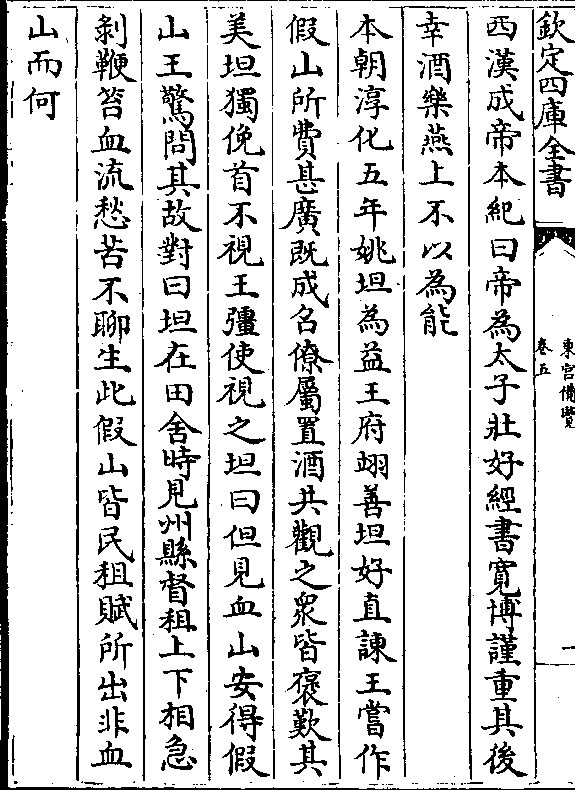 欽定四庫全書
東宮備覽
卷五
一
西漢成帝本紀曰帝為太子壯好經書寛博謹重其後
幸酒樂燕上不以為能
本朝淳化五年姚坦為益王府翊善坦好直諫王嘗作
假山所費甚廣既成名僚屬置酒共觀之衆皆褒歎其
美坦獨俛首不視王彊使視之坦曰但見血山安得假
山王驚問其故對曰坦在田舍時見州縣督租上下相急
剝鞭笞血流愁苦不聊生此假山皆民租賦所出非血
山而何